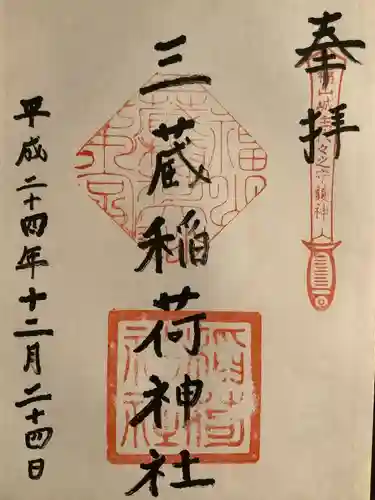 奉拝
三蔵稲荷神社
平成二十四年十二月二十四日
稲荷神社